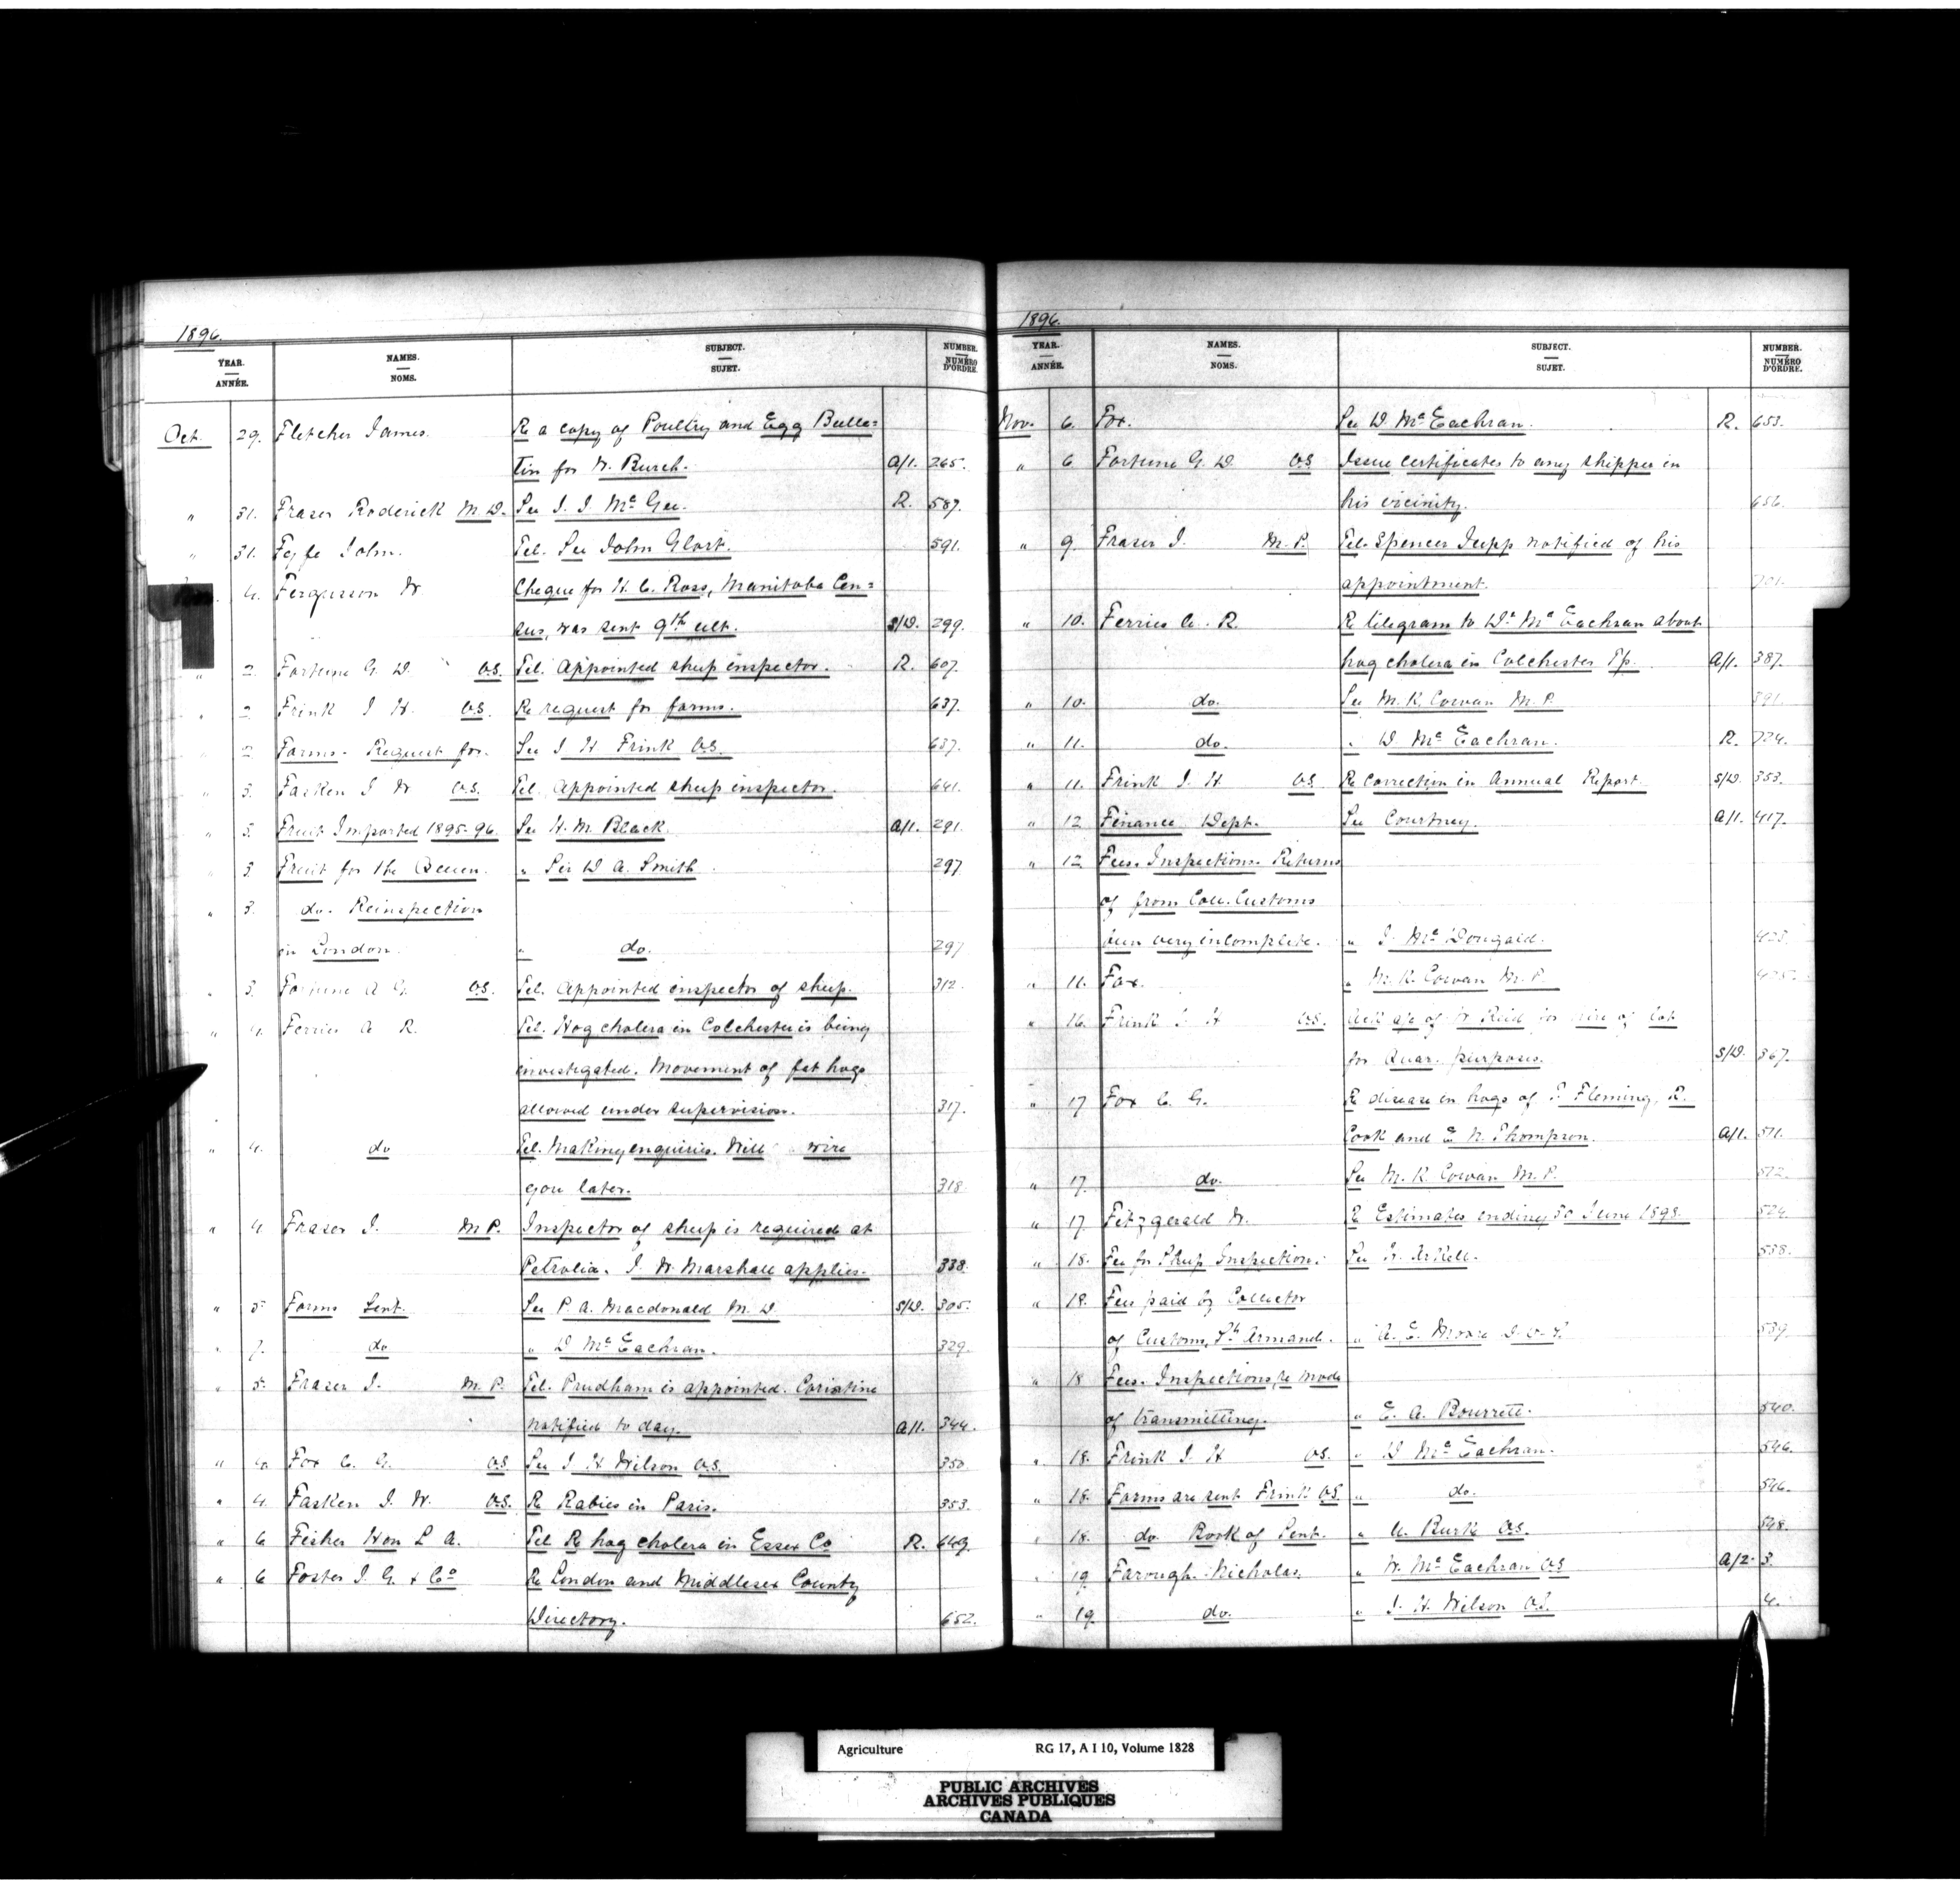 1896.
YEAR.
ANNÉE.
NAMES.
NOMS.
SUBJECT.
SUJET.
NUMBER.
NUMÉRO
D'ORDRE.
Oct. 29. Fletcher James. Re a copy of Poultry and Egg Bulle=
tin for W. Burch. A/1. 265.
" 31. Fraser Roderick M.D. See J. J. McGee. R. 587.
" 31. Fyffe John. Tel. See John Glort. 591.
4. Fergusson W Cheque for H. C. Ross, Manitoba Cen=
sus, was sent 9th ult. S/D. 299.
" 2. Fortune G. D. V.S. Tel. Appointed sheep inspector. R. 607.
" 2. Frink J H. V.S. Re request for forms. 637.
" 2. Forms. Request for. See J H Frink V.S. 637.
" 3. Fasken J W V.S. Tel. Appointed sheep inspector. 641.
" 3. Fruit Imported 1895-96. See H. M. Black. A/1. 291
" 3. Fruit for the Queen. " Sir D A. Smith 297
" 3. do. Reinspection
in London. " do. 297
" 3. Fortune A G. V.S. Tel. Appointed inspector of sheep. 312.
" 4. Ferries A R. Tel. Hog cholera in Colchester is being
investigated. Movement of fat hogs
allowed under supervision. 317.
" 4. do Tel. Making enquiries. Will wire
you later. 318
" 4 Fraser J. M.P. Inspector of sheep is required at
Petrolia. J. W. Marshall applies. 338.
" 5 Forms Sent. See P. A. Macdonald M.D. S/D. 305.
" 7. do " D McEachran. 329.
" 5. Fraser J. M.P. Tel. Prudham is appointed. Christine
notified to day. A/1. 344.
" 4. Fox C. G. V.S. See J H Wilson V.S. 350
" 4. Fasken J. W. V.S. Re Rabies in Paris. 353.
" 6 Fisher Hon S. A. Tel Re hog cholera in Essex Co R. 649.
" 6 Foster J. G. & Co Re London and Middlesex County
Directory. 652.
1896.
YEAR.
ANNÉE.
NAMES.
NOMS.
SUBJECT.
SUJET.
NUMBER.
NUMÉRO
D'ORDRE.
Nov. 6. Fox. See D. McEachran. R. 653.
" 6 Fortune G. D. V.S Issue certificates to any shipper in
his vicinity. 656.
" 9. Fraser J. M.P. Tel. Spencer Jupp notified of his
appointment. 701.
" 10. Ferries A. R. Re telegram to Dr McEachran about
hog cholera in Colchester Tp. A/1. 387.
" 10. do. See M. K. Cowan M.P. 391.
" 11. do. " D McEachran. R. 724.
" 11. Frink J. H V.S. Re correction in Annual Report. S/D. 353.
" 12 Finance Dept. See Courtney. A/1. 417.
" 12 Fees. Inspections. Returns
of from Coll. Customs
been very incomplete. " J. McDougald. 423.
" 11. Fox. " M. K. Cowan M.P. 425.
" 16. Frink J. H V.S. a/c of W Reid for hire of
for Quar. purposes. S/D. 367.
" 17 Fox C. G. Re disease in hogs of Fleming, R.
Cook and E N. Thompson. A/1. 511.
" 17. do. See M. K. Cowan M.P. 512.
" 17. Fitzgerald W. Re Estimates ending 30 June 1898. 524.
" 18. Fee for Sheep Inspection. See Arkell. 538.
" 18. Fees paid by Collector
of Customs, St Armand. " A. E. Moore D.V.S. 539.
" 18 Fees. Inspections, re mode
of transmitting. " E. A. Bourrett. 540.
" 18. Frink J. H V.S. " D McEachran. 546.
" 18. Forms are sent Frink V.S. " do. 546.
" 18. do Book of Sent. " Burk V.S. 548.
" 19 Farough Nicholas. " McEachran V.S A/2. 3.
" 19. do. " J. H. Wilson V.S. 4.
Agriculture RG 17, A I 10, Volume 1828
PUBLIC ARCHIVES
ARCHIVES PUBLIQUES
CANADA